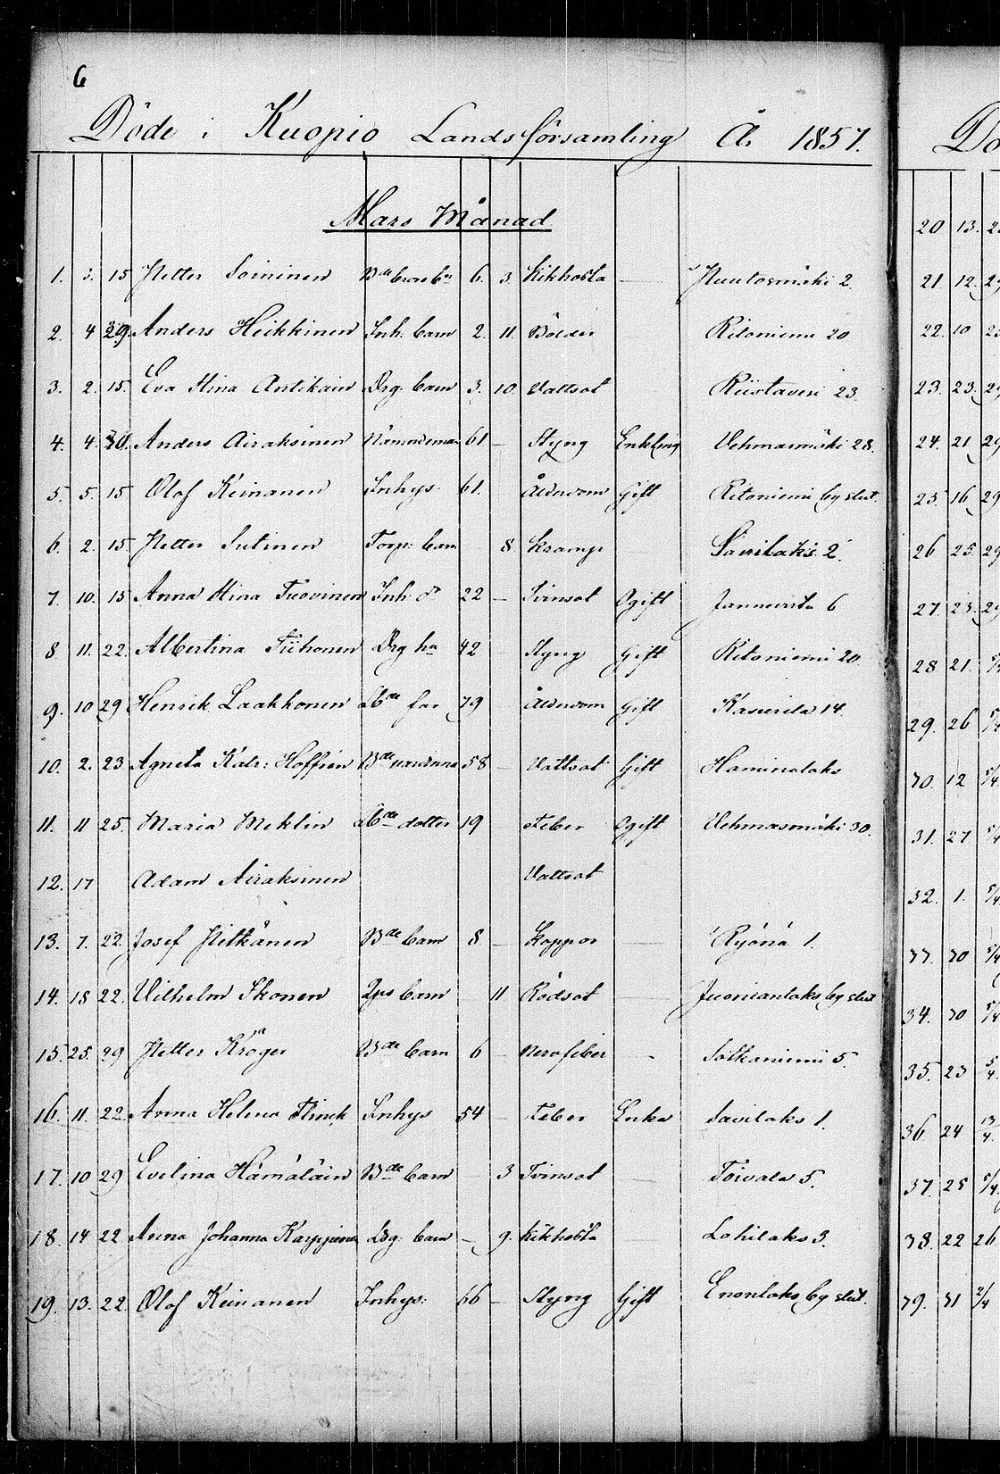 6
Döde i Kuopio Landsförsamling År 1857.
Mars Månad
1. 3. 15 Petter Soininen Bde 6. 3. Kikhosta — Puutosmäki 2.
2. 4 29. Anders Heikkinen Inh. barn 2. 11. Bölder Ritoniemi 20
3. 2. 15. Eva Stina Antikain Drg. barn 3. 10. Vattsot Riistavesi 23
4. 4. 30. Anders Airaksinen 61 — Styng Enkling Vehmasmäki 28.
5. 5. 15. Olof Keinanen Inhys. 61. Ålderdom Gift Ritoniemi by slut.
6. 2. 15. Petter Sutinen Torp. barn 8. Kramp Savilaks 2.
7. 10. 15 Anna Stina Tuovinen Inh. dr 22 — Tvinsot Ogift Jännevirta 6
8 11. 22. Albertina Tiihonen Drg hu 42 Styng Gift Ritoniemi 20.
9. 10 29 Henrik Laakkonen Åbde far 79 Ålderdom Gift Kasurila 14.
10. 2. 23 Agneta Katr: Hoffrén Bde värdinna 58 — Vattsot Gift Haminalaks
11. 11 25. Maria Meklin Åbde dotter 19 — Feber Ogift Vehmasmäki 30.
12. 17 Adam Airaksinen Vattsot
13. 7. 22. Josef Pitkänen Bde barn 8 — Koppor — Ryönä 1.
14. 18 22. Vilhelm Ikonen barn 11. Rödsot — by slut
15. 25. 29 Petter Kröger Bde barn 6 — Nervfeber - Sotkaniemi 5.
16. 11. 22. Anna Helena Flinck Inhys 54 — Feber Enka Savilaks 1.
17. 10 29 Evelina Hämäläin Bde barn 3 Tvinsot — Toivala 5.
18. 14 22 Anna Johanna Karppinen Drg. barn — 9. Kikhosta — Lohilaks 3.
19. 13. 22. Olof Keinanen Inhys. 66 — Styng Gift Enonlaks by slut.
Dö
20 13.
21 12.
22. 10
23. 23.
24. 21
25. 16
26 25.
27. 23.
28 21.
29. 26
30. 12
31. 27
32. 1.
33. 30
34. 30
35. 23
36 24 13/4
37. 25
38. 22 26
39. 31 2/4